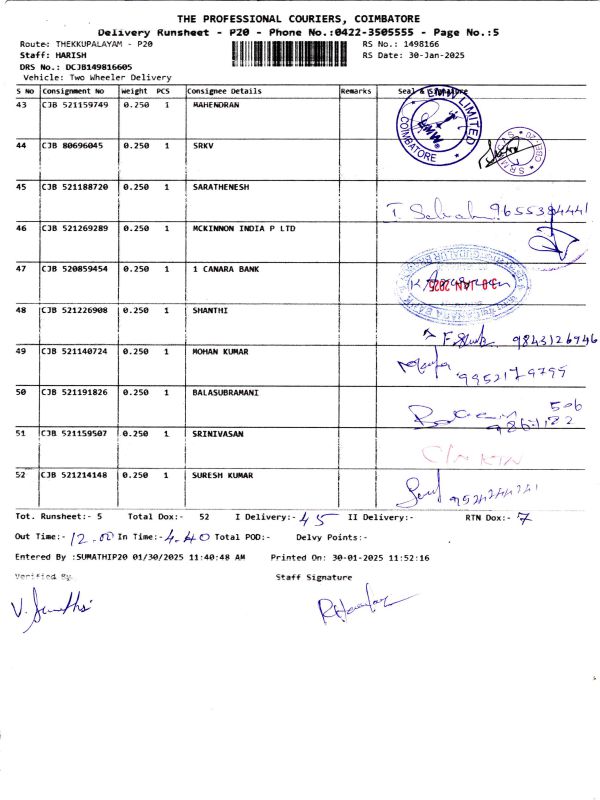 THE PROFESSIONAL COURIERS, COIMBATORE
Delivery Runsheet - P20 - Phone No.:0422-3505555 - Page No.:5
Route: THEKKUPALAYAM - P20 RS No.: 1498166
Staff: HARISH RS Date: 30-Jan-2025
DRS No.: DCJB149816605
Vehicle: Two Wheeler Delivery
S NO Consignment No Weight PCS Consignee Details Remarks Seal & Signature
43 CJB 521159749 0.250 1 MAHENDRAN
LMW LIMITED
LMW
COIMBATORE
44 CJB 80696045 0.250 1 SRKV
45 CJB 521188720 0.250 1 SARATHENESH
9655384441
46 CJB 521269289 0.250 1 MCKINNON INDIA P LTD
47 CJB 520859454 0.250 1 1 CANARA BANK
30 JAN 2025
48 CJB 521226908 0.250 1 SHANTHI
9843126946
49 CJB 521140724 0.250 1 MOHAN KUMAR
9952179799
50 CJB 521191826 0.250 1 BALASUBRAMANI
506
51 CJB 521159507 0.250 1 SRINIVASAN
52 CJB 521214148 0.250 1 SURESH KUMAR
Tot. Runsheet:- 5 Total Dox:- 52 I Delivery:- 45 II Delivery:- RTN Dox:- 7
Out Time:- 12.00 In Time:- 4.40 Total POD:- Delvy Points:-
Entered By :SUMATHIP20 01/30/2025 11:40:48 AM Printed On: 30-01-2025 11:52:16
Verified By. Staff Signature
V. Sumathi